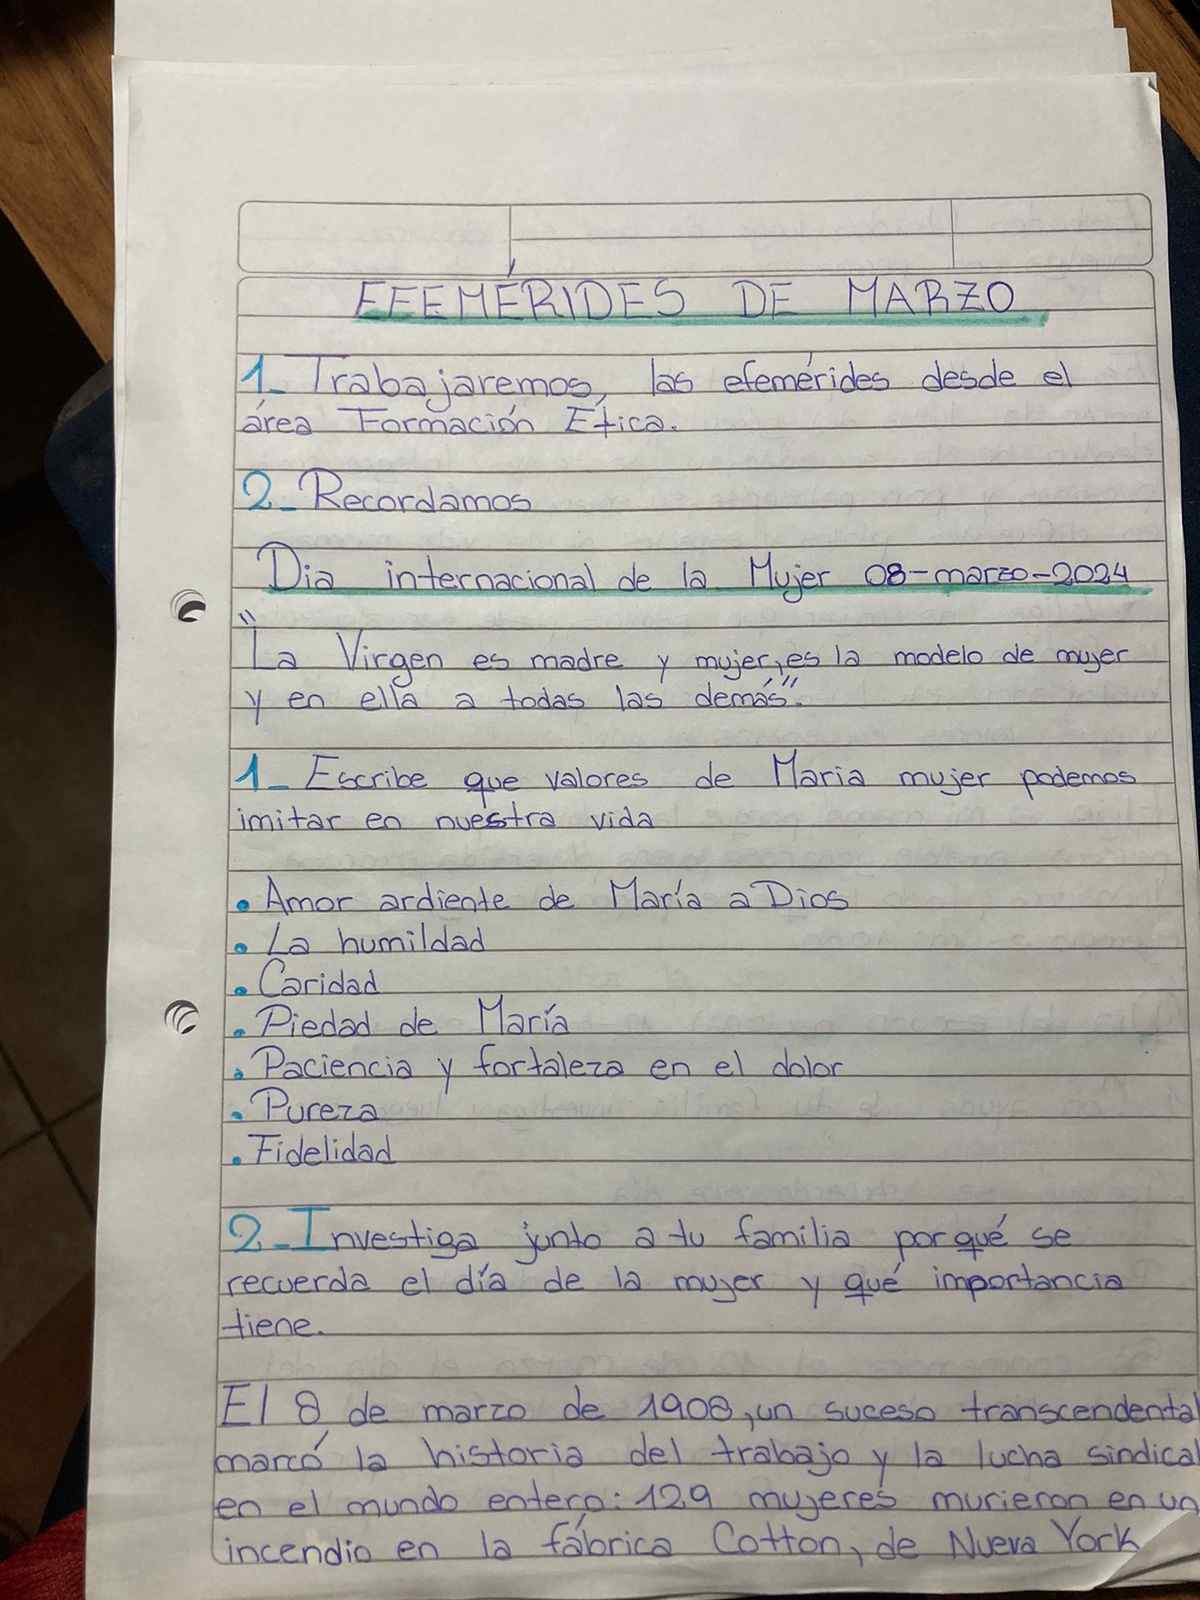 EFEMÉRIDES DE MARZO
1_ Trabajaremos, las efemérides desde el
área Formación Ética.
2_ Recordamos
Dia internacional de la Mujer 08-marzo-2024
"La Virgen es madre y mujer, es la modelo de mujer
y en ella a todas las demás".
1_ Escribe que valores de Maria mujer podemos
imitar en nuestra vida
• Amor ardiente de María a Dios
• La humildad
• Caridad
• Piedad de María
• Paciencia y fortaleza en el dolor
• Pureza
• Fidelidad
2_ Investiga junto a tu familia por qué se
recuerda el día de la mujer y qué importancia
tiene.
El 8 de marzo de 1908, un suceso transcendental
marcó la historia del trabajo y la lucha sindical
en el mundo entero: 129 mujeres murieron en un
incendio en la fábrica Cotton, de Nueva York